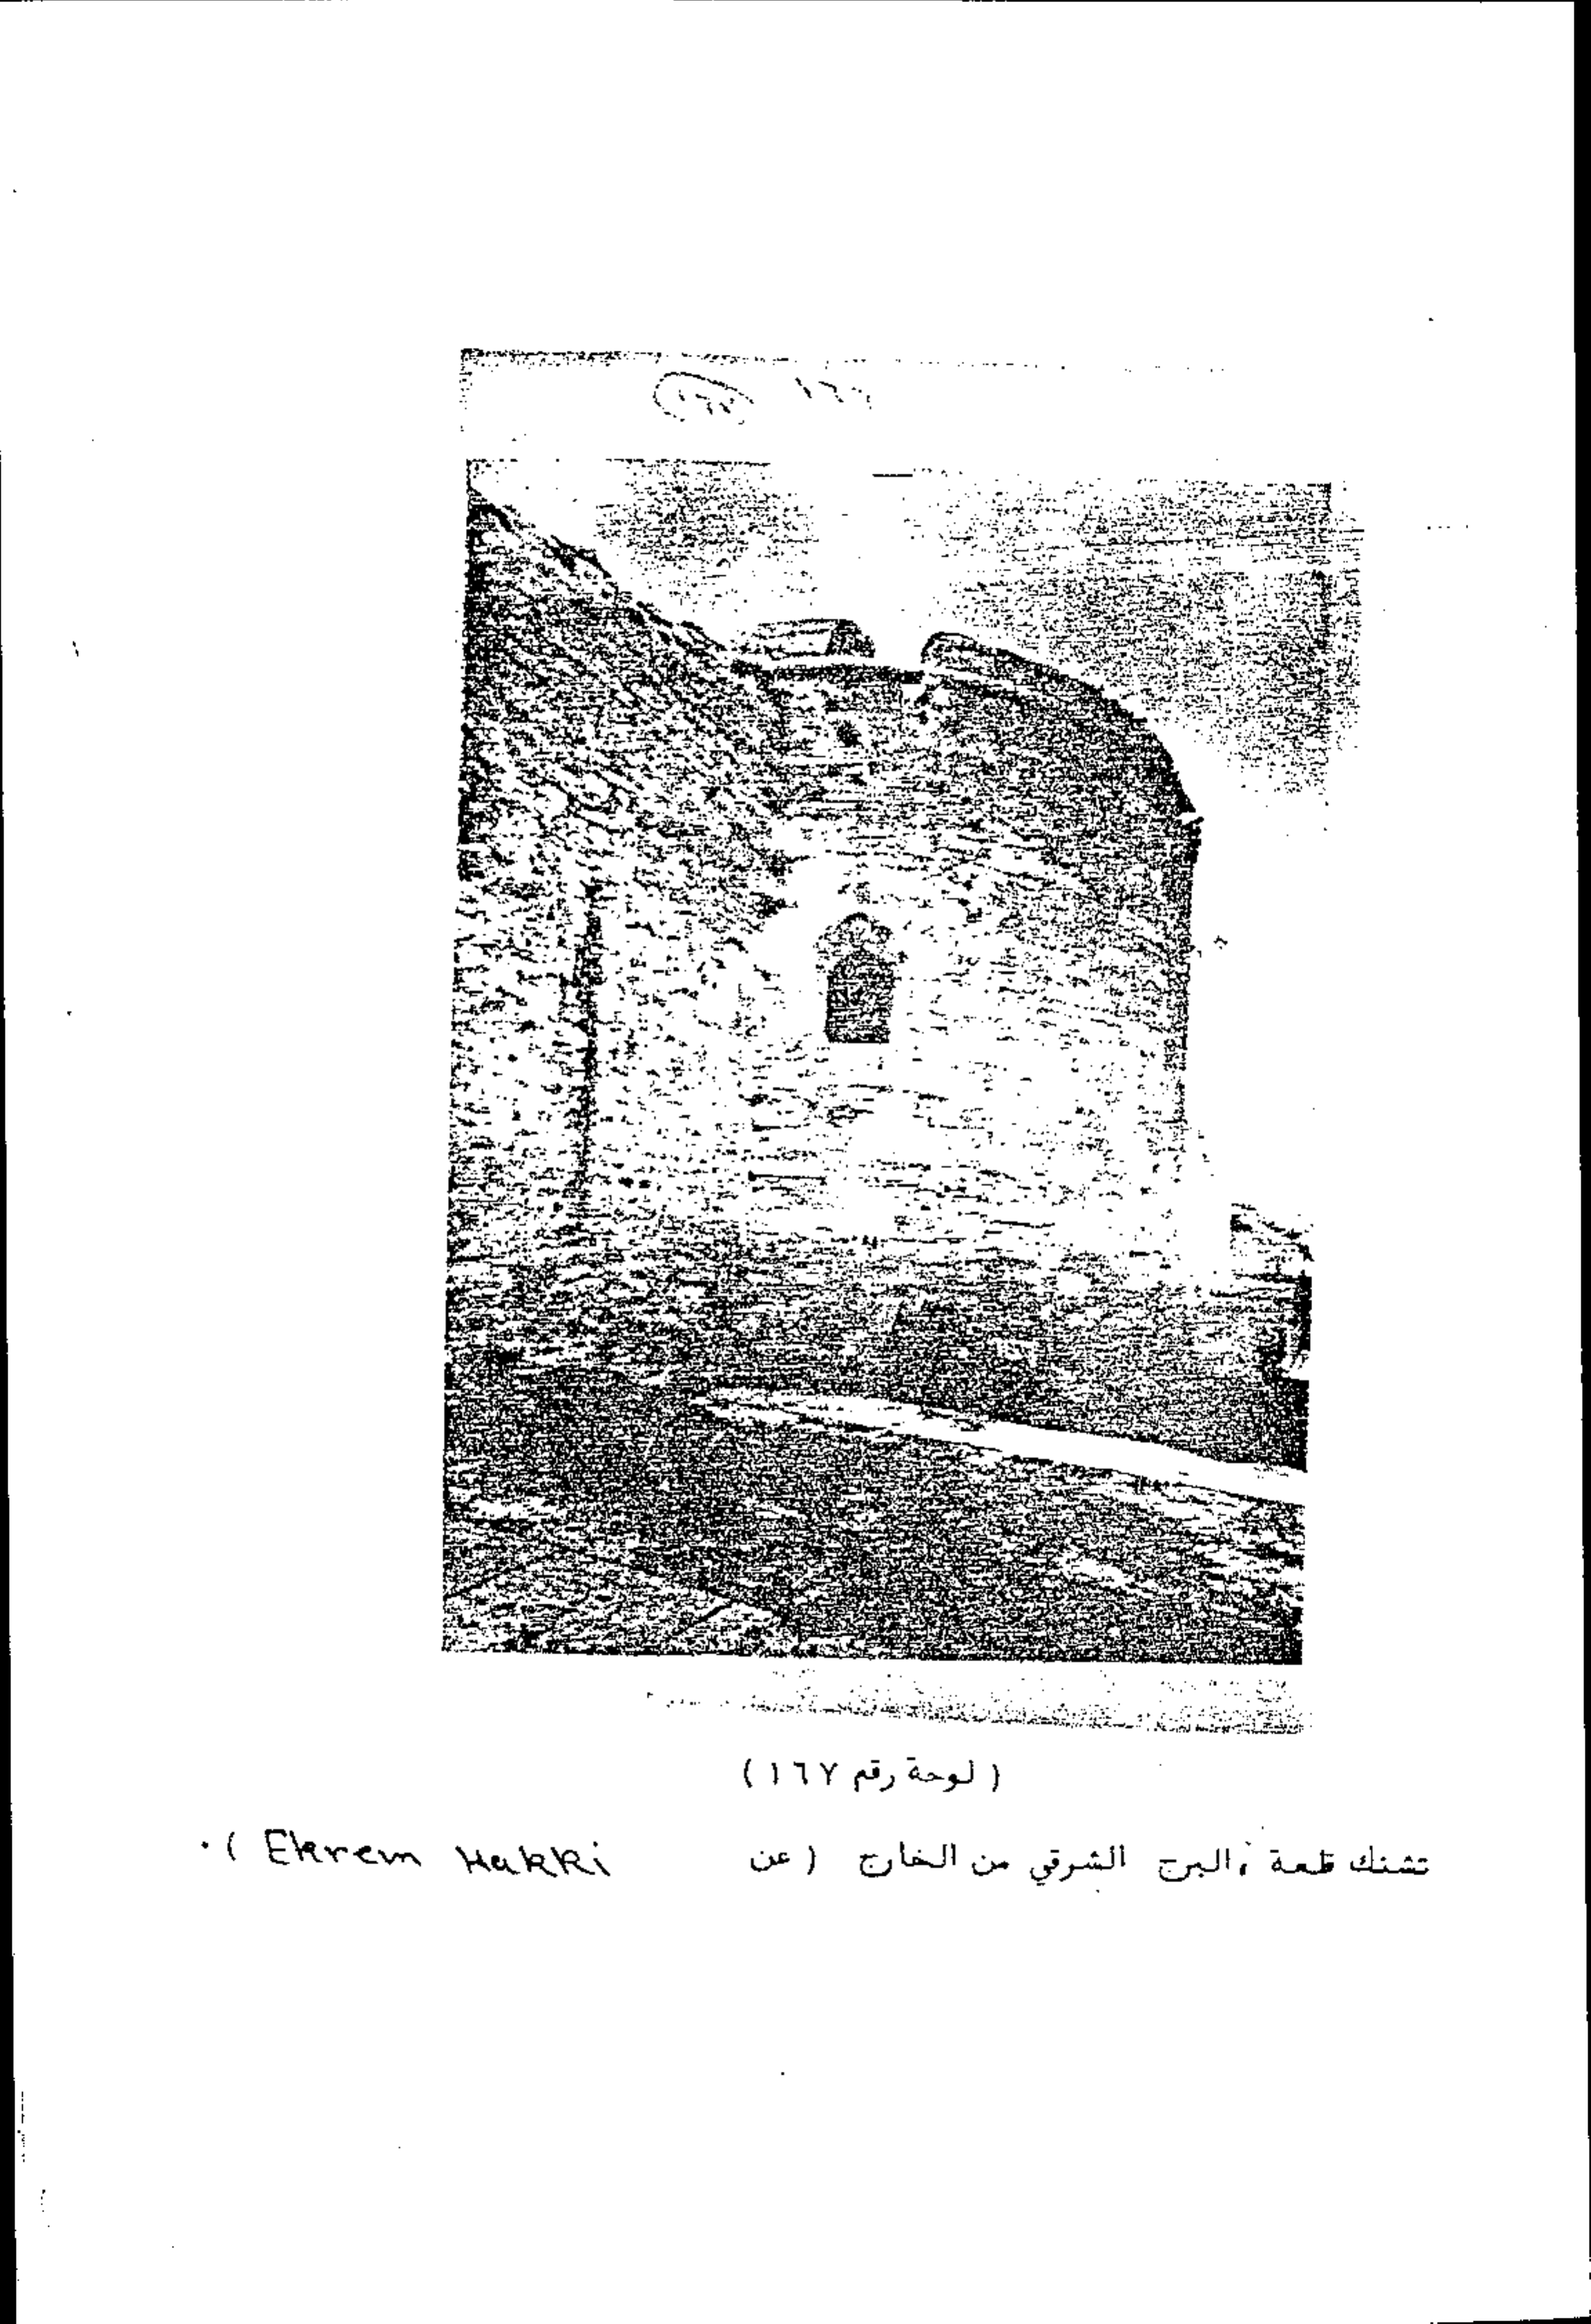 (لوحة رقم ١٦٧)
تشنك قلعة ، البرج الشرقي من الخارج (عن Ekrem Hakki) .